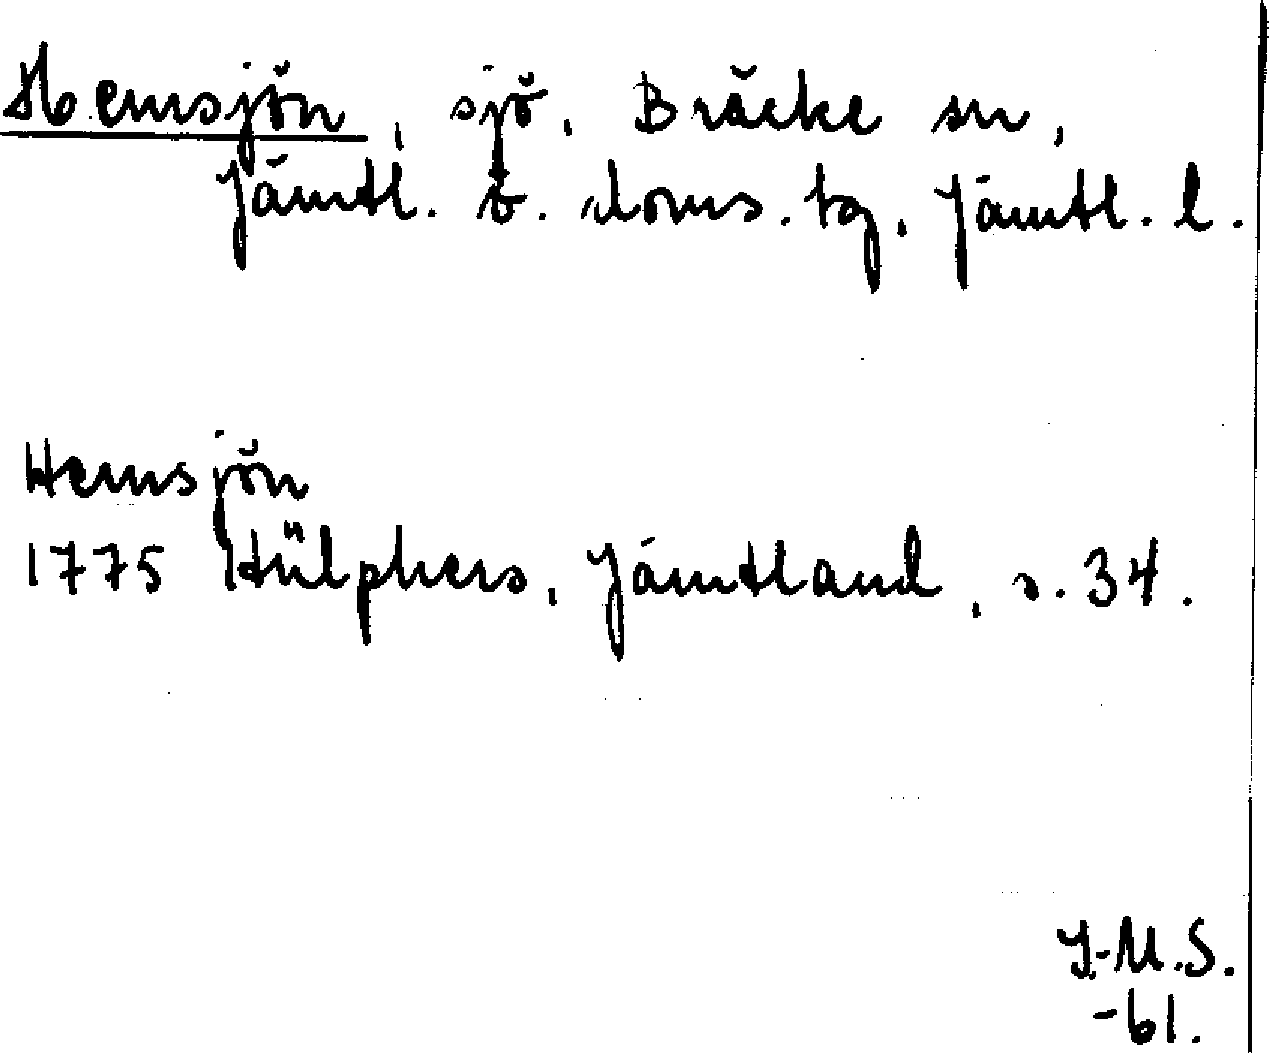 Hemsjön, sjö, Bräcke sn,
Jämtl. ö. doms. tg, Jämtl. l.
Hemsjön
1775 Hülphers, Jämtland, s. 34.
I-M.S.
-61.